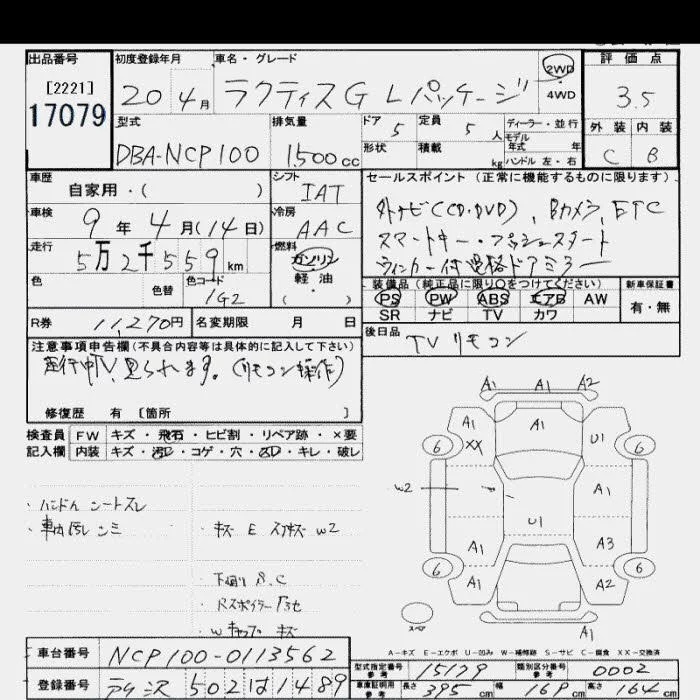 出品番号 初度登録年月 車名・グレード 2WD 評価点
[2221] 20 4月 ラクティス G Lパッケージ 4WD 3.5
17079 型式 排気量 ドア 定員 ディーラー・並行 外装 内装
5 5人 モデル年式 年
DBA-NCP100 1,500cc 形状 積載 kg ハンドル 左・右 C B
車歴 シフト セールスポイント (正常に機能するものに限ります).
自家用・( ) IAT
車検 冷房 外ナビ(CD・DVD)、Bカメラ、ETC
9年4月(14日) AAC スマートキー・プッシュスタート
走行 燃料 ウィンカー付電格ドアミラー
5万2千559km ガソリン 装備品(純正品に限り○をつけてください) 新車保証書
色 色替 色コード 軽油 PS PW ABS エアB AW 有・無
1G2 ( ) SR ナビ TV カワ
R券 11,270円 名変期限 月 日 後日品
TVリモコン
注意事項申告欄(不具合内容等は具体的に記入して下さい)
走行中TV見られます。(リモコン操作)
修復歴 有 [箇所 ]
検査員 FW キズ・飛石・ヒビ割・リペア跡・×要
記入欄 内装 キズ・汚レ・コゲ・穴・スレ・キレ・破レ
A1 A1 A2
A1 XX A1 U1
6 6
W2 A1
U1
A1 A3
6 A1 A2 6
A1
スペア
・ハンドル シートスレ
・車内汚レ シミ ・キズ E スリキズ W2
・下廻り S.C
・Rスポイラー
・Wキャップ キズ
A-キズ E-エクボ U-凹み W-補修跡 S-サビ C-腐食 XX-交換済
車台番号 NCP100-0113562 型式指定番号 参考 15179 類別区分番号 参考 0002
登録番号 502 は 1489 車庫証明用 参考 長さ 395cm 幅 169cm 高さ 164cm